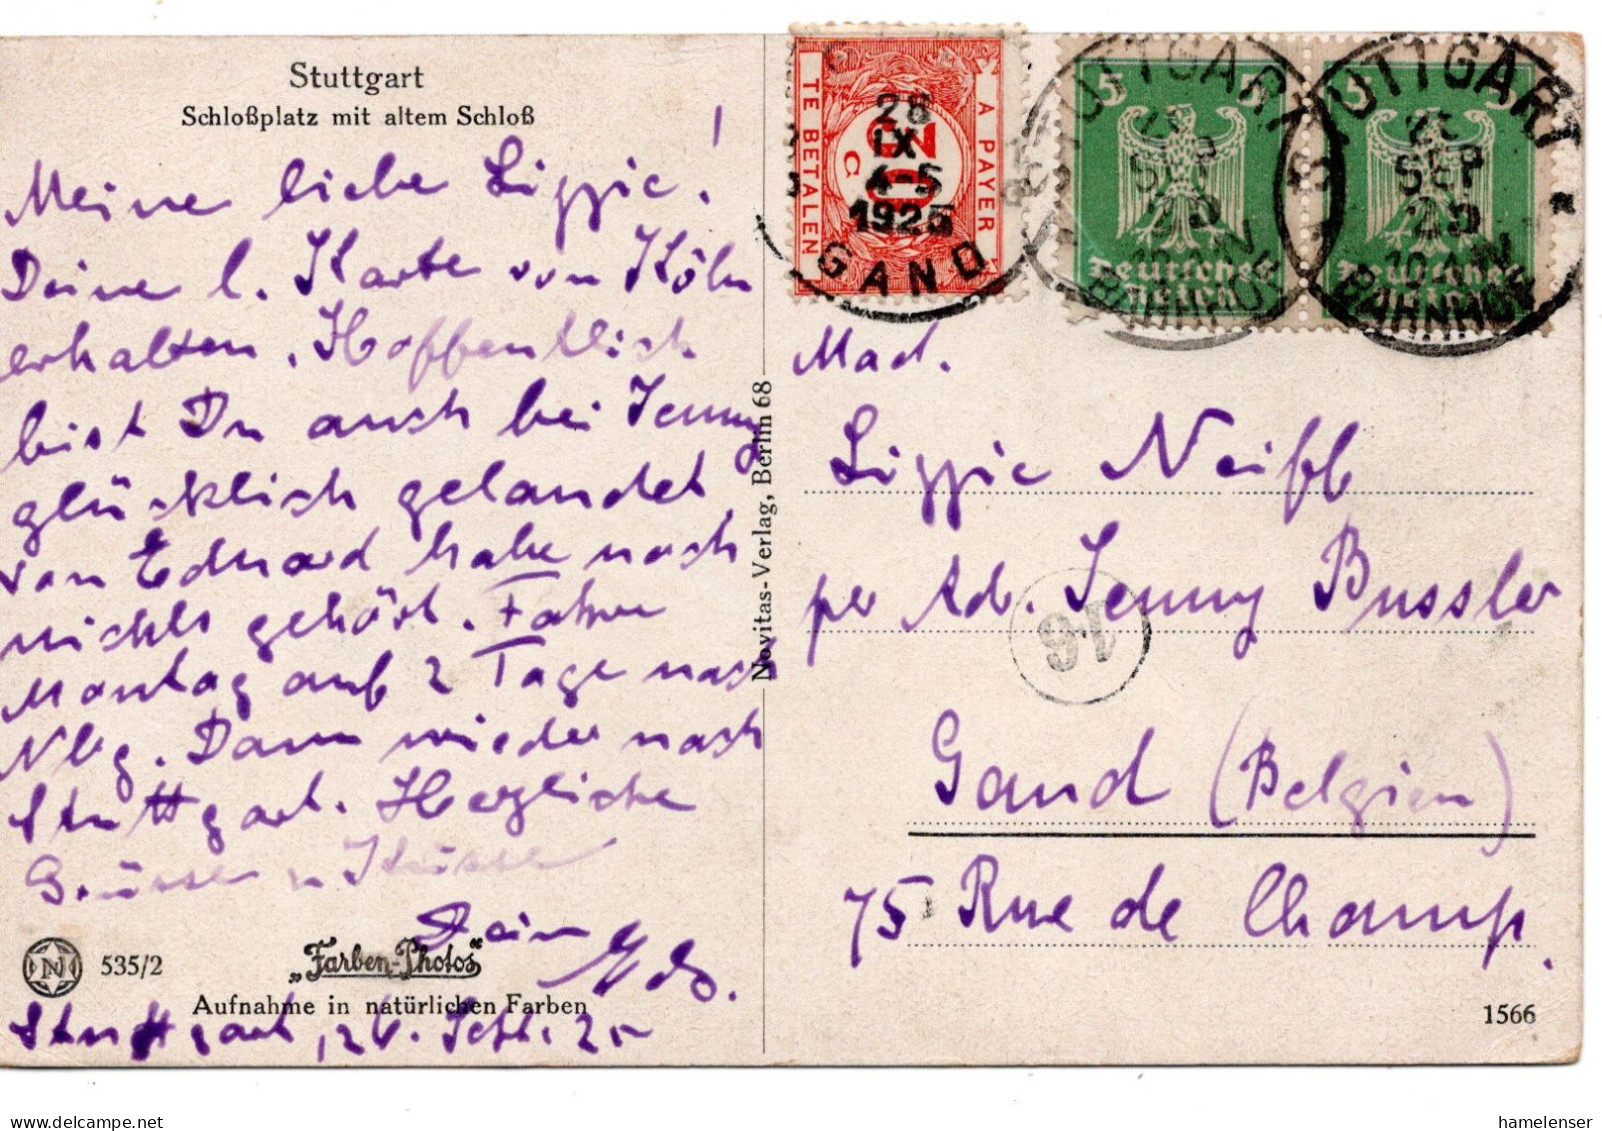 Stuttgart
Schloßplatz mit altem Schloß
Meine liebe Lizzie!
Deine l. Karte von Köln
erhalten. Hoffentlich
bist Du auch bei Jenny
glücklich gelandet
von Eduard habe noch
nichts gehört. Fahre
Montag auf 2 Tage nach
Nbg. Dann wieder nach
Stuttgart. Herzliche
Grüsse u Küsse
Dein
535/2
„Farben-Photos"
Aufnahme in natürlichen Farben
Stuttgart, 26. Sept. 25
Novitas-Verlag, Berlin 68
TE BETALEN
A PAYER
20 C
28
IX
4-5
1925
GAND
STUTTGART
SEP
25
10
BAHNHOF
5 5
Deutsches
Reich
STUTTGART
SEP
25
10
BAHNHOF
5 5
Deutsches
Reich
Mad.
Lizzie
per Adr. Jenny Bussler
16
Gand (Belgien)
75 Rue de Champ.
1566
delcampe.net
hamelenser